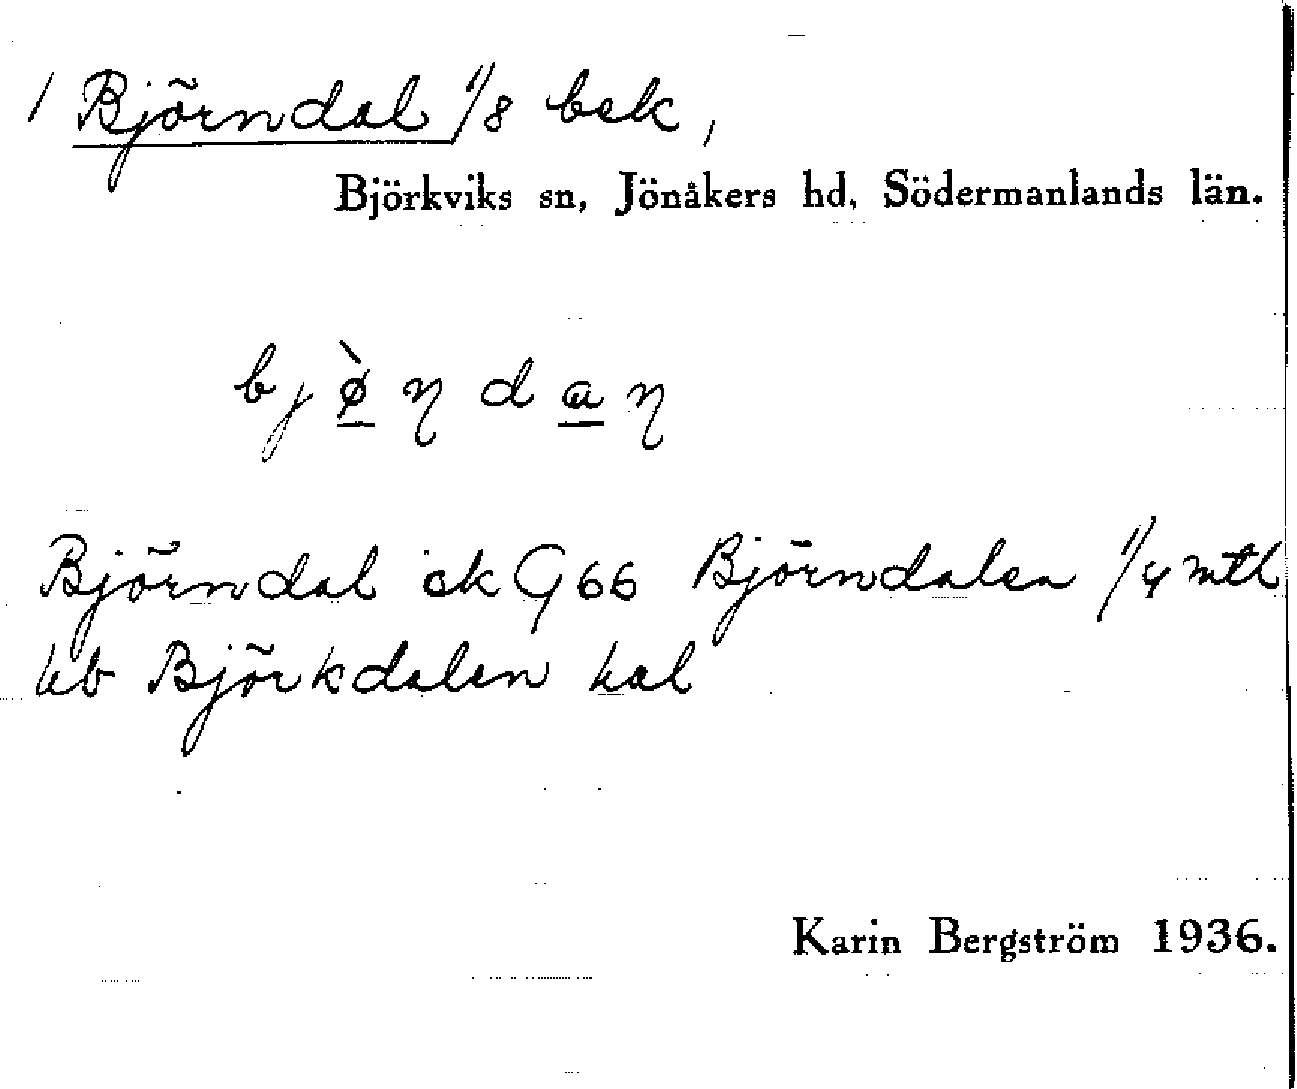 1 Björndal 1/8 bek,
Björkviks sn, Jönåkers hd, Södermanlands län.
bjø̀ŋdaŋ
Björndal ek G66 Björndalen 1/4 mtl
hb Björkdalen hal
Karin Bergström 1936.